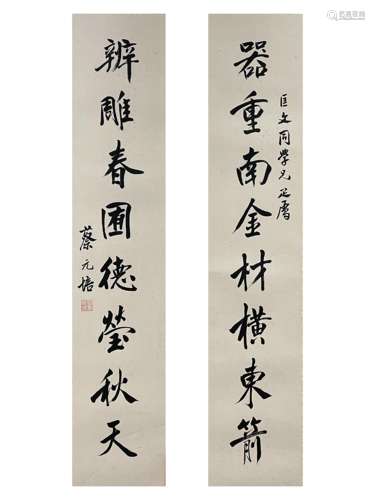 器重南金材橫東箭
匡文同學兄正屬
辨雕春圃德瑩秋天
蔡元培